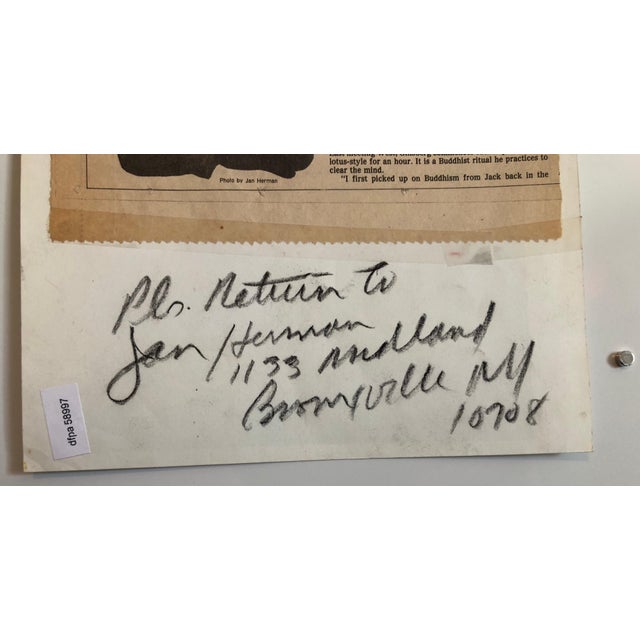 lotus-style for an hour. It is a Buddhist ritual he practices to
clear the mind.
"I first picked up on Buddhism from Jack back in the
Photo by Jan Herman
Pls. Return to
Jan Herman
1133 Midland
Bronxville NY
10708
dfpa 58997